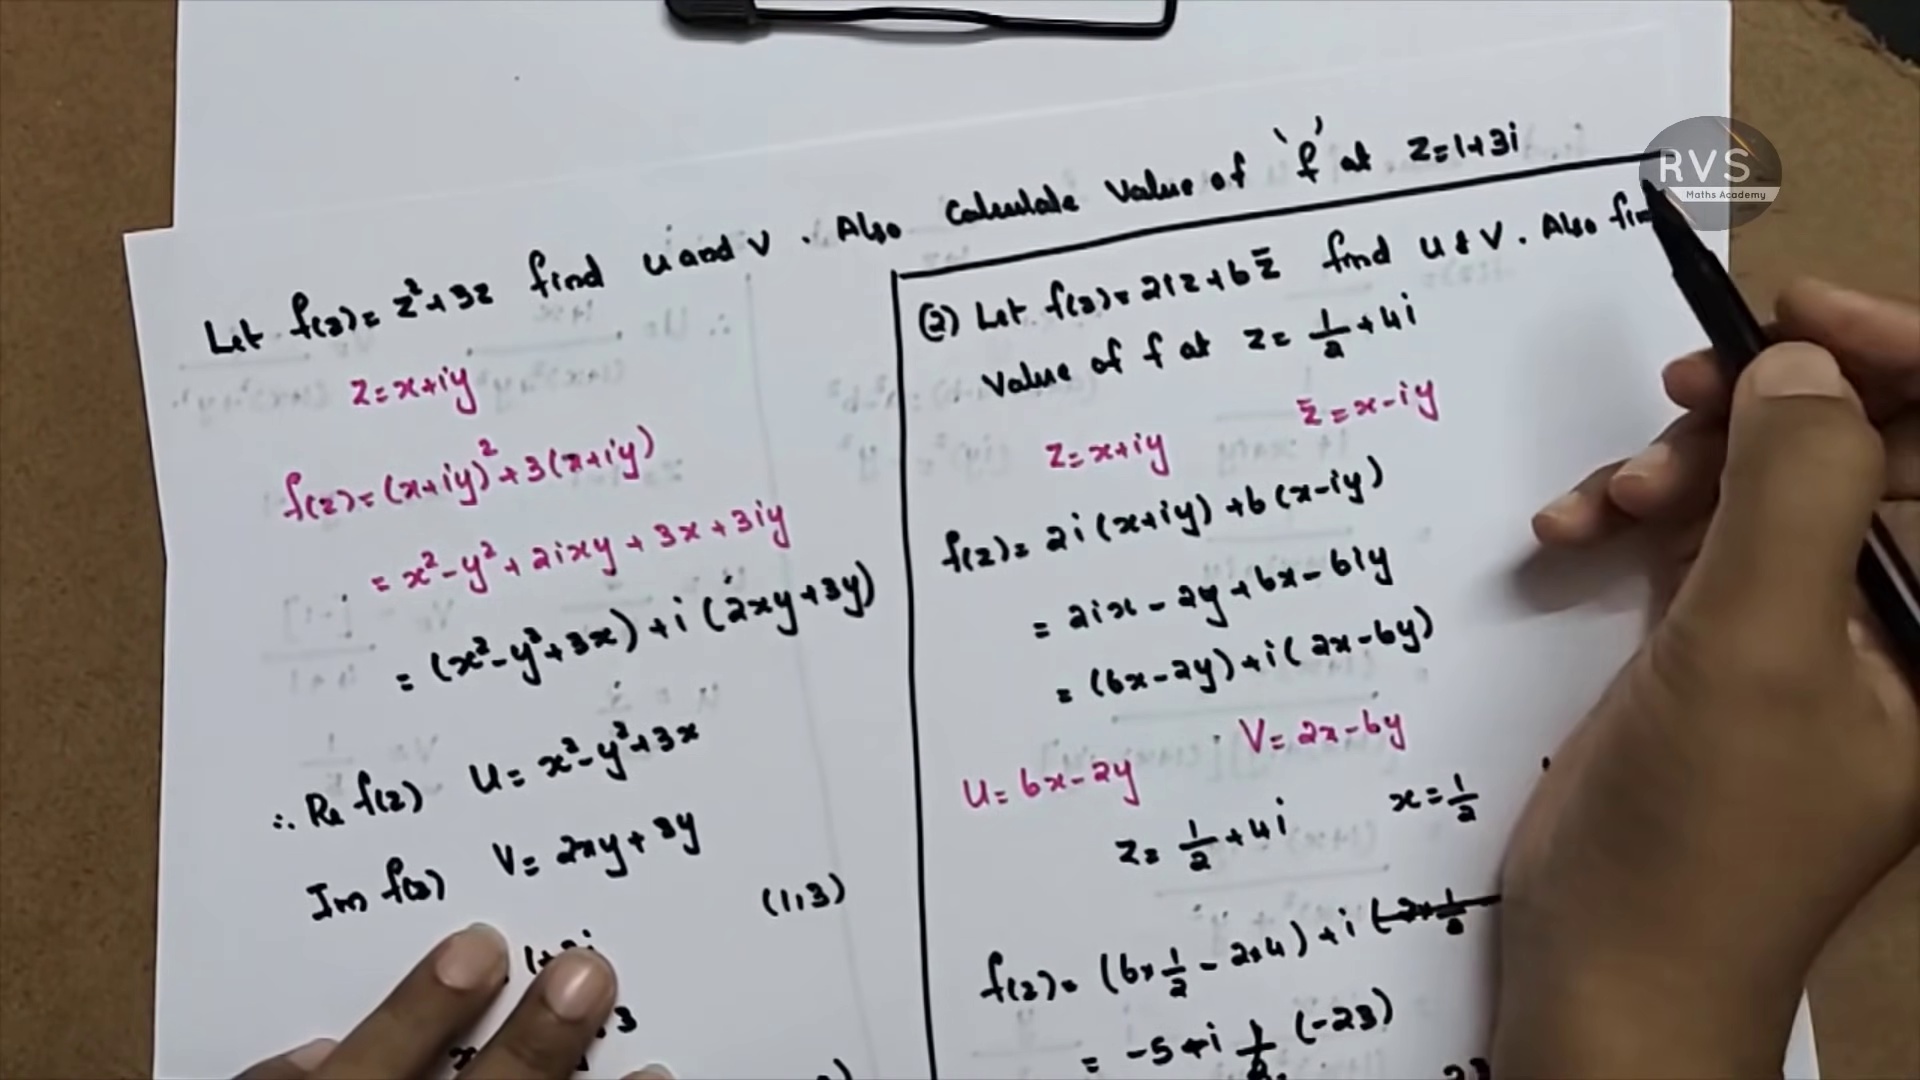 Let f(z) = z² + 3z find u and v. Also Calculate Value of 'f' at z = 1+3i
z = x+iy
f(z) = (x+iy)² + 3(x+iy)
= x² - y² + 2ixy + 3x + 3iy
= (x² - y² + 3x) + i (2xy + 3y)
∴ Re f(z) u = x² - y² + 3x
Im f(z) V = 2xy + 3y
(1,3)
(2) Let f(z) = 2iz + 6z̄ find u & v. Also
Value of f at z = 1/2 + 4i
z = x+iy z̄ = x-iy
f(z) = 2i (x+iy) + 6 (x-iy)
= 2ix - 2y + 6x - 6iy
= (6x - 2y) + i ( 2x - 6y)
U = 6x - 2y V = 2x - 6y
z = 1/2 + 4i x = 1/2
f(z) = (6 × 1/2 - 2×4) + i
= -5 + i (-23)
RVS
Maths Academy